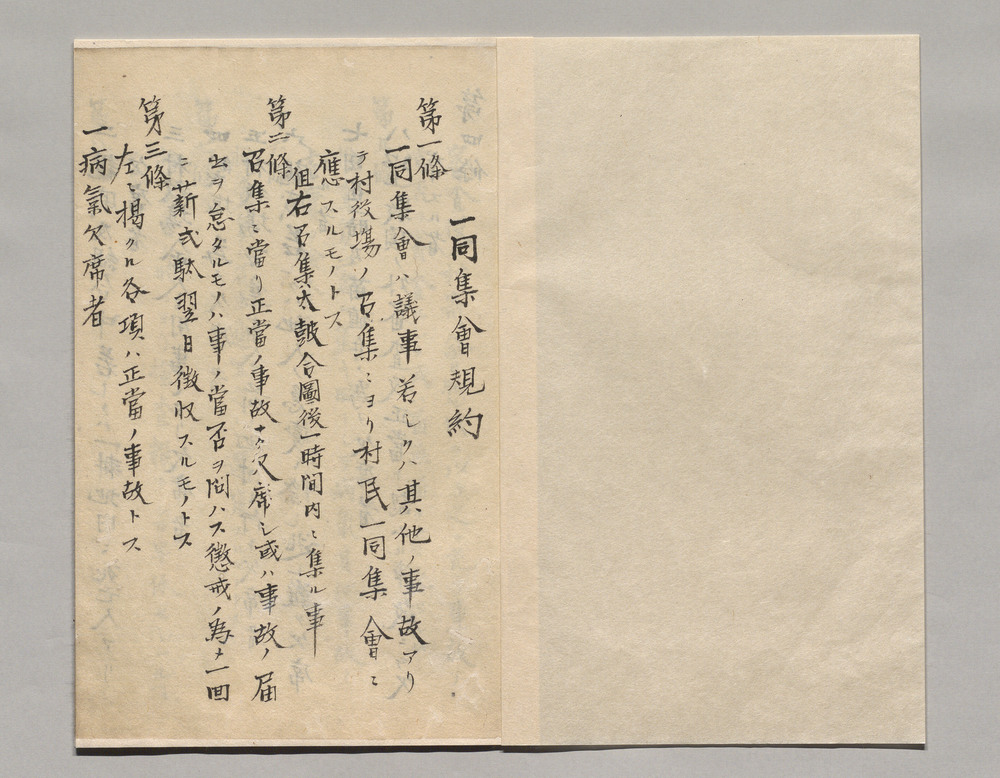 一同集會規約
第一條
一同集會ハ議事若シクハ其他ノ事故アリ
テ村役場ノ召集ニヨリ村民一同集會ニ
應スルモノトス
但右召集太皷合圖後一時間内ニ集ル事
第二條
召集ニ當リ正當ノ事故ナク欠席シ或ハ事故ノ届
出ヲ怠タルモノハ事ノ當否ヲ問ハス懲戒ノ為メ一回
ニ薪弍駄翌日徴収スルモノトス
第三條
左ニ掲クル各項ハ正當ノ事故トス
一病氣欠席者